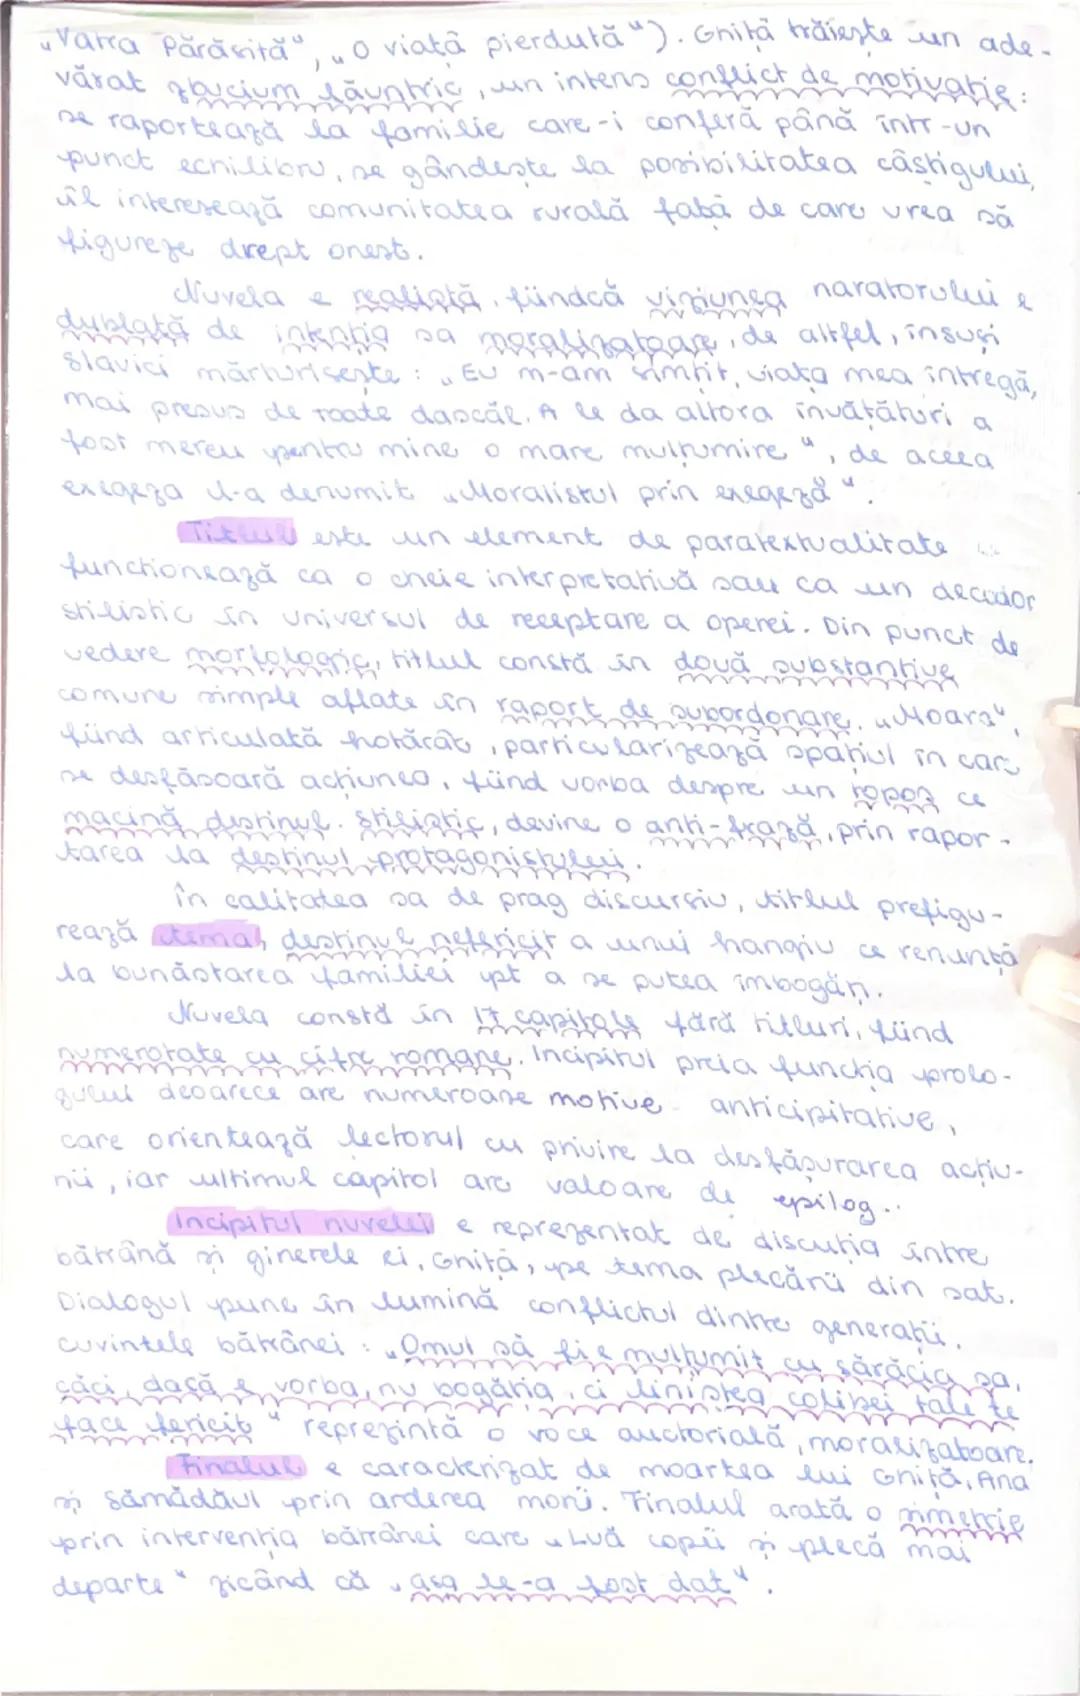 „Vatra Părăsită", „O viață pierdută"). Ghiță trăiește un ade-
vărat zbucium lăuntric, un intens conflict de motivație:
se raportează la familie care-i conferă până într-un
punct echilibru, se gândește la posibilitatea câștigului,
îl interesează comunitatea rurală față de care vrea să
figureze drept onest.
Nuvela e realistă, fiindcă viziunea naratorului e
dublată de intenția sa moralizatoare, de altfel, însuși
Slavici mărturisește: „Eu m-am simțit, viața mea întregă,
mai presus de toate dascăl. A le da altora învățături a
fost mereu pentru mine o mare mulțumire", de aceea
exegeza l-a denumit „Moralistul prin exegeză".
Titlul este un element de paratextualitate
funcționează ca o cheie interpretativă sau ca un decodor
stilistic în universul de receptare a operei. Din punct de
vedere morfologic, titlul constă în două substantive
comune simple aflate în raport de subordonare. „Moara",
fiind articulată hotărât, particularizează spațiul în care
se desfăsoară acțiunea, fiind vorba despre un topos ce
macină destinul. Stilistic, devine o anti-frază, prin rapor-
tarea la destinul protagonistului.
În calitatea sa de prag discursiv, titlul prefigu-
rează tema, destinul nefericit a unui hangiu ce renunță
la bunăstarea familiei pt a se putea îmbogăți.
Nuvela constă în 17 capitole fără titluri, fiind
numerotate cu cifre romane. Incipitul preia funcția prolo-
gului deoarece are numeroase motive anticipitative,
care orientează lectorul cu privire la desfășurarea acțiu-
nii, iar ultimul capitol are valoare de epilog..
Incipitul nuvelei e reprezentat de discuția între
bătrână și ginerele ei, Ghiță, pe tema plecării din sat.
Dialogul pune în lumină conflictul dintre generații.
Cuvintele bătrânei: „Omul să fie mulțumit cu sărăcia sa,
căci, dacă e vorba, nu bogăția, ci liniștea colibei tale te
face fericit" reprezintă o voce auctorială, moralizatoare.
Finalul e caracterizat de moartea lui Ghiță, Ana
și Sămădăul prin arderea morii. Finalul arată o simetrie
prin intervenția bătrânei care „Luă copii și plecă mai
departe" zicând că „așa le-a fost dat".